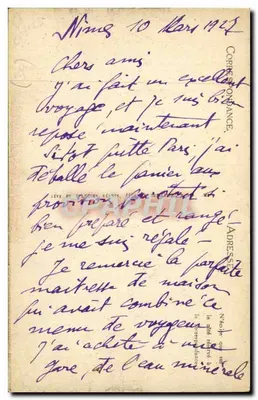 Nîmes 10 Mars 1927
Chers amis
j'ai fait un excellent
voyage, et je suis bien
reposé maintenant
sitôt quitté Paris, j'ai
déballé le panier aux
provisions qui était si
bien préparé et rangé -
je me suis régalé -
Je remercie la parfaite
maîtresse de maison
qui avait combiné ce
menu de voyageur
j'ai acheté à une
gare, de l'eau minérale
CORRESPONDANCE
ADRESSE